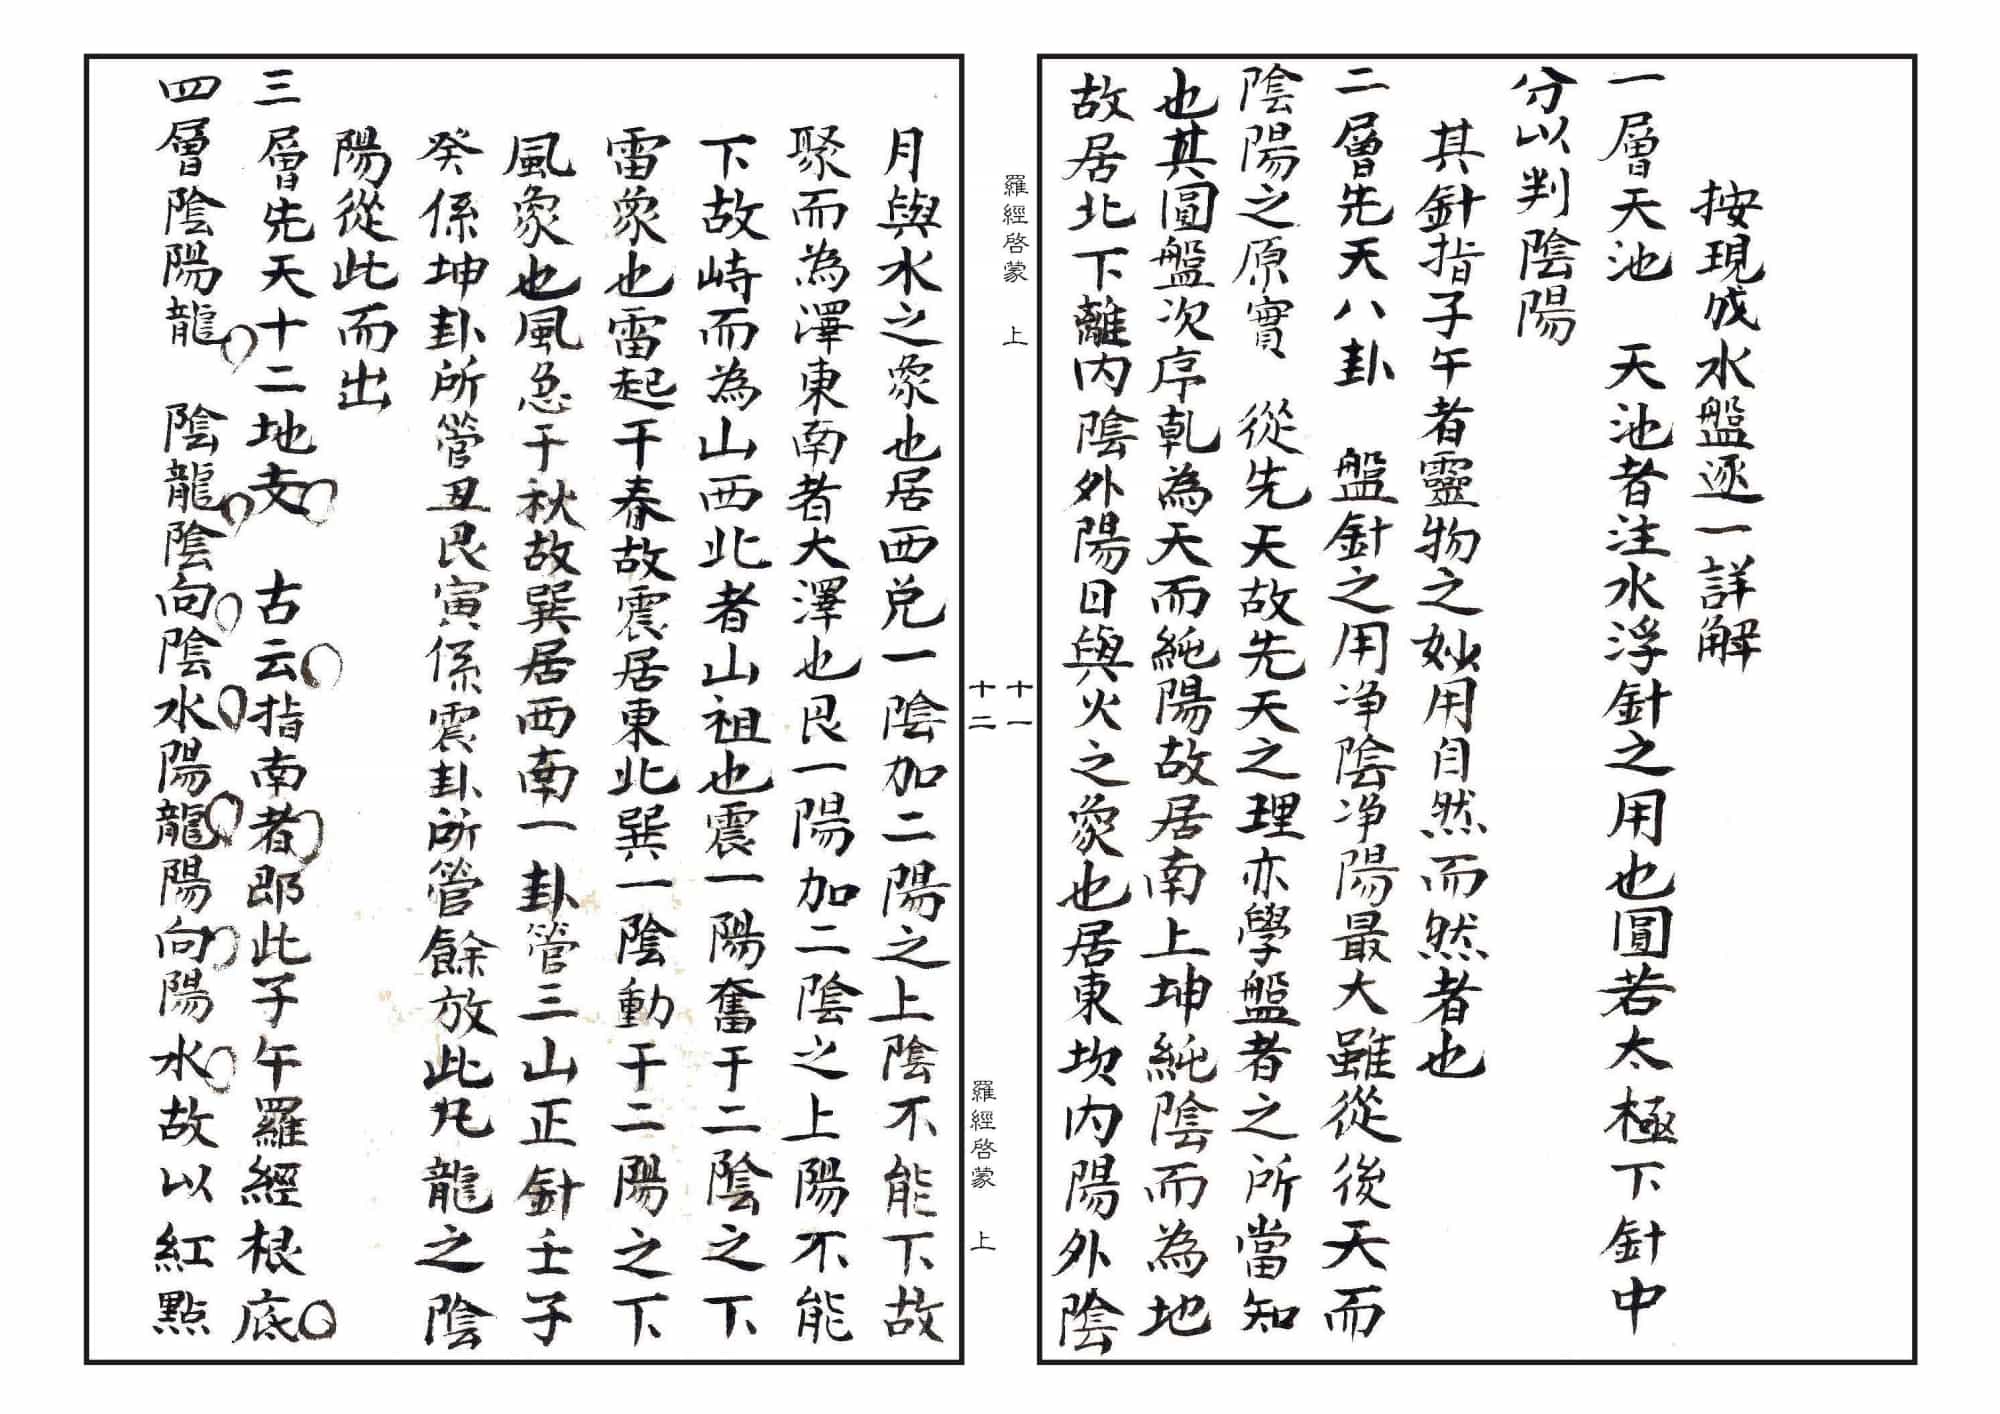 按現成水盤逐一詳解
一層天池　天池者注水浮針之用也圓若太極下針中
分以判陰陽
其針指子午者靈物之妙用自然而然者也
二層先天八卦　盤針之用净陰净陽最大雖從後天而
陰陽之原實　從先天故先天之理亦學盤者之所當知
也其圓盤次序乹為天而純陽故居南上坤純陰而為地
故居北下離內陰外陽日與火之象也居東坎內陽外陰
羅經啓蒙　上
十一
月與水之象也居西兌一陰加二陽之上陰不能下故
聚而為澤東南者大澤也艮一陽加二陰之上陽不能
下故峙而為山西北者山祖也震一陽奮于二陰之下
雷象也雷起干春故震居東北巽一陰動干二陽之下
風象也風急于秋故巽居西南一卦管三山正針壬子
癸係坤卦所管丑艮寅係震卦所管餘放此九龍之陰
陽從此而出
三層先天十二地支　古云指南者即此子午羅經根底
四層陰陽龍　陰龍陰向陰水陽龍陽向陽水故以紅點
十二
羅經啓蒙　上